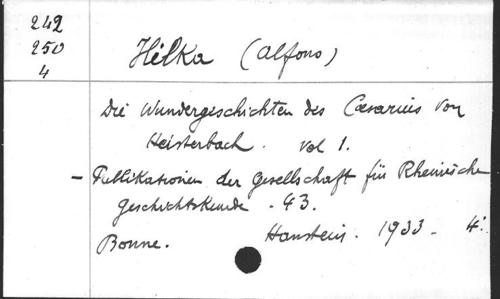 242
250
4
Hilka (Alfons)
Die Wundergeschichten des Caesarius von
Heisterbach. vol 1.
- Publikationen der Gesellschaft für Rheinische
Geschichtskunde - 43.
Bonne. Hanstein. 1933 - 4°.